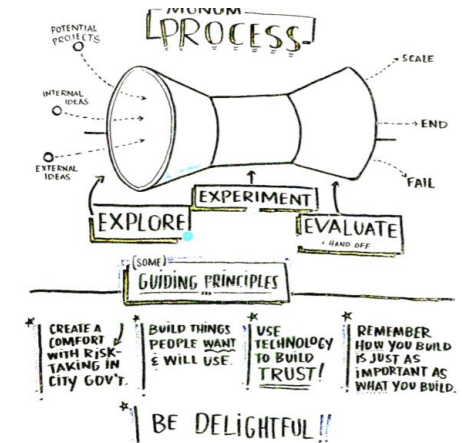 PROCESS
POTENTIAL
PROJECTS
INTERNAL
IDEAS
EXTERNAL
IDEAS
SCALE
END
FAIL
EXPLORE
EXPERIMENT
EVALUATE
+ HAND OFF
(SOME)
GUIDING PRINCIPLES
CREATE A
COMFORT
WITH RISK-
TAKING IN
CITY GOV'T.
BUILD THINGS
PEOPLE WANT
& WILL USE.
USE
TECHNOLOGY
TO BUILD
TRUST!
REMEMBER
HOW YOU BUILD
IS JUST AS
IMPORTANT AS
WHAT YOU BUILD.
BE DELIGHTFUL!!